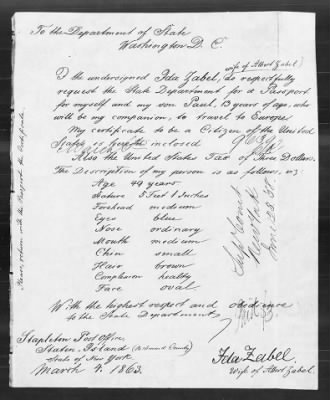 To the Department of State
Washington D. C.
wife of Albert Zabel)
I the undersigned Ida Zabel, do respectfully
request the State Department for a Passport
for myself and my son Paul, 13 years of age, who
will be my companion, to travel to Europe.
My certificate to be a Citizen of the United
States is inclosed
Also the United States Tax of Three Dollars.
The Description of my person is as follows, vz
Age 49 years
Stature 5 Feet 1 Inches
Forehead medium
Eyes blue
Nose ordinary
Mouth medium
Chin small
Hair brown
Complexion healthy
Face oval
With the highest respect and obedience
to the State Department
Stapleton Post Office,
Staten Island (Richmond County)
State of New York
March 4. 1863.
Ida Zabel.
Wife of Albert Zabel.
Please return with the Passport the Certificate.
Sup Court
New York